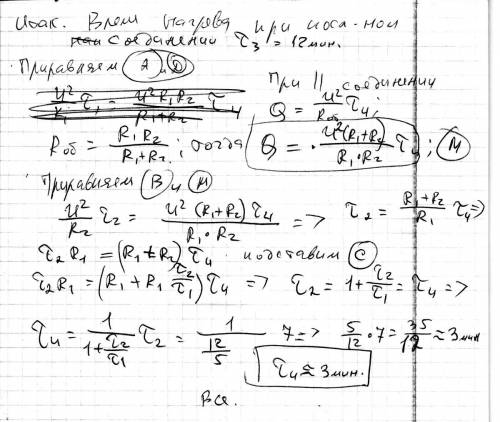 Итак. Время нагрева при посл-ном
соединении τ₃ = 12 мин.
Приравняем (А) и (D)
При || соединении
Q = U²/Rоб τ₄;
Rоб = R₁R₂/(R₁+R₂); тогда Q = U²(R₁+R₂)/(R₁·R₂) τ₄; (М)
Приравняем (В) и (М)
U²/R₂ τ₂ = U²(R₁+R₂)τ₄/(R₁·R₂) => τ₂ = (R₁+R₂)/R₁ τ₄ =>
τ₂R₁ = (R₁+R₂)τ₄ подставим (С)
τ₂R₁ = (R₁+R₁ τ₂/τ₁)τ₄ => τ₂ = 1+τ₂/τ₁ = τ₄ =>
τ₄ = 1/(1+τ₂/τ₁) τ₂ = 1/(12/5) 7 => 5/12 · 7 = 35/12 ≈ 3 мин
τ₄ ≈ 3 мин.
Все.